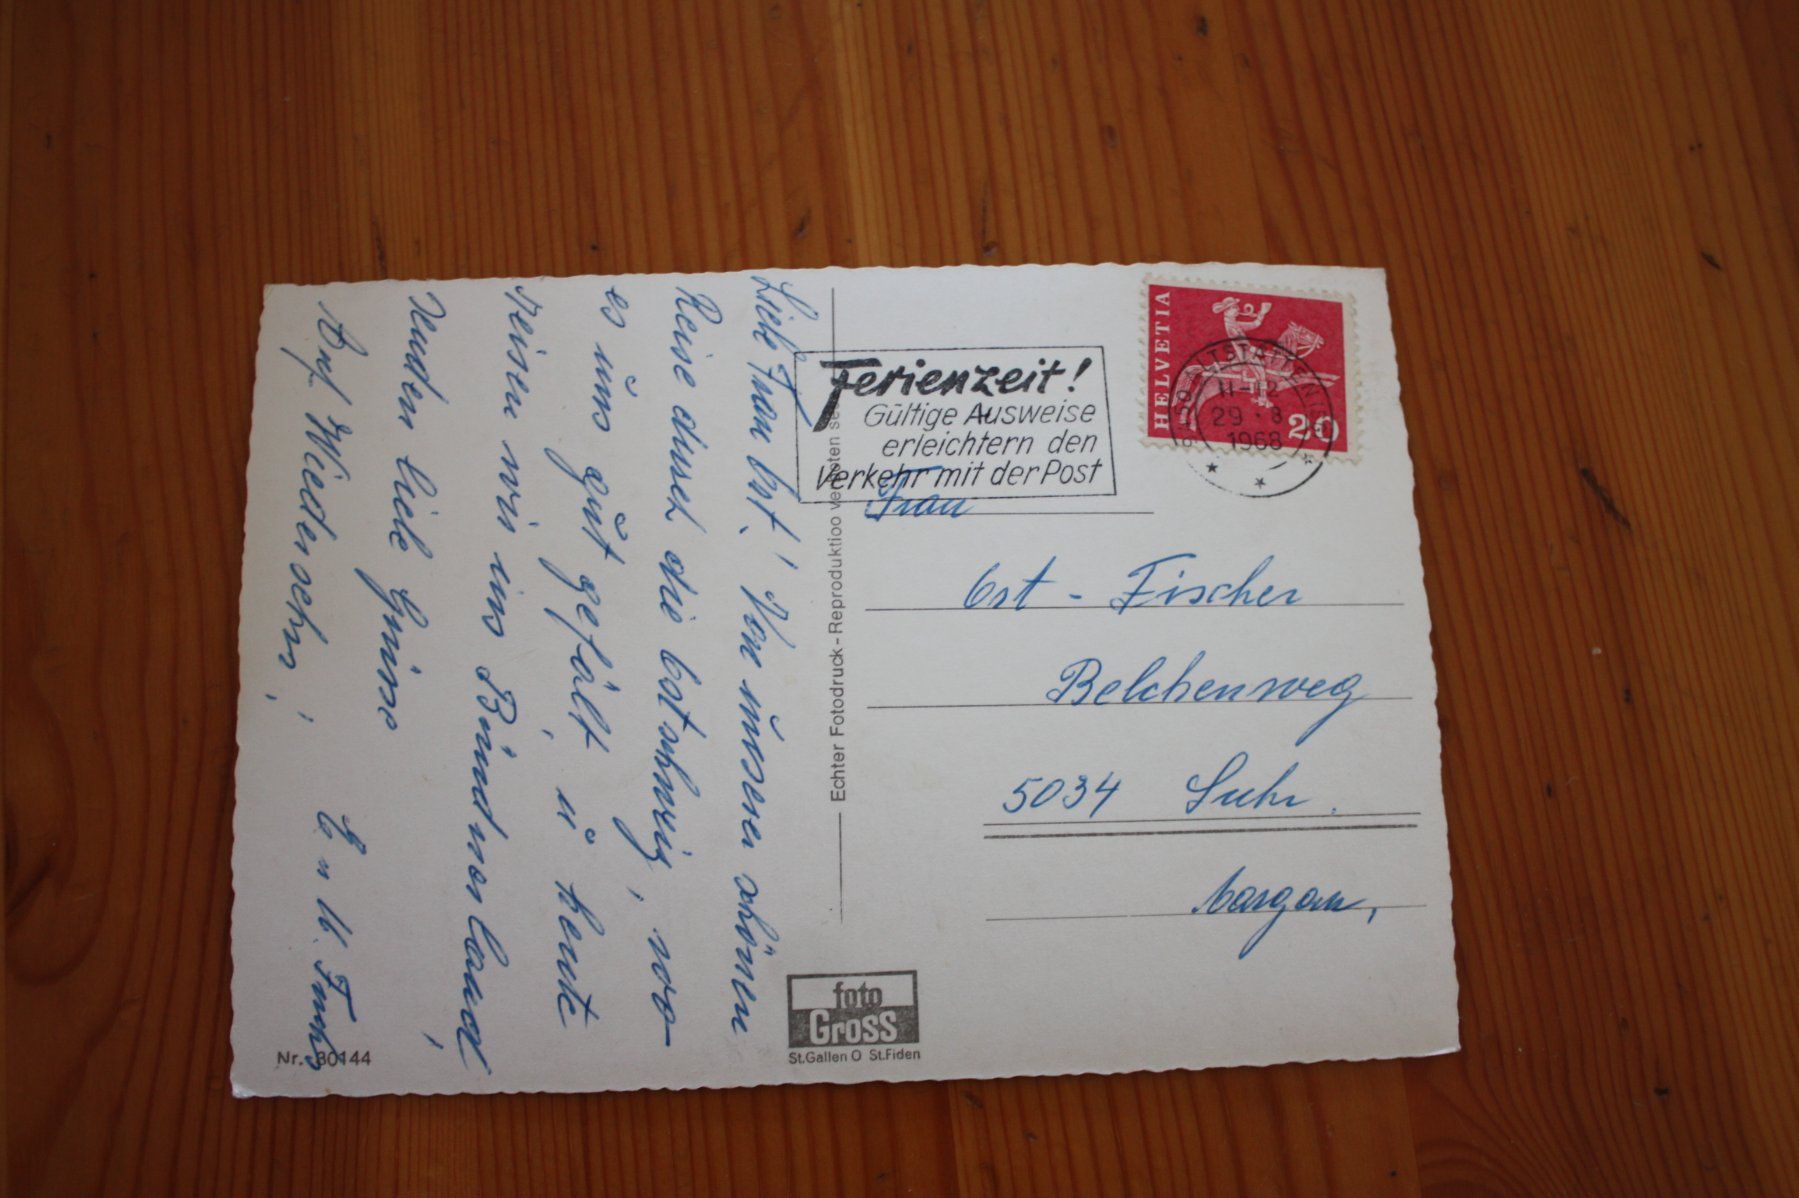 Liebe Frau Ost! Von unserer schönen
Reise durch die Ostschweiz, wo
es uns gut gefält u. heute
reisen wir ins Bündnerland,
senden liebe Grüsse
Auf Wiedersehn!
E u H. Fuchs
Nr. 30144
Echter Fotodruck - Reproduktioo verboten
Ferienzeit!
Gültige Ausweise
erleichtern den
Verkehr mit der Post
HELVETIA
20
9450 ALTSTÄTTEN
11-12
29.8
1968
Frau
Ost - Fischer
Belchenweg
5034 Suhr.
Aargau,
foto
Gross
St.Gallen O St.Fiden